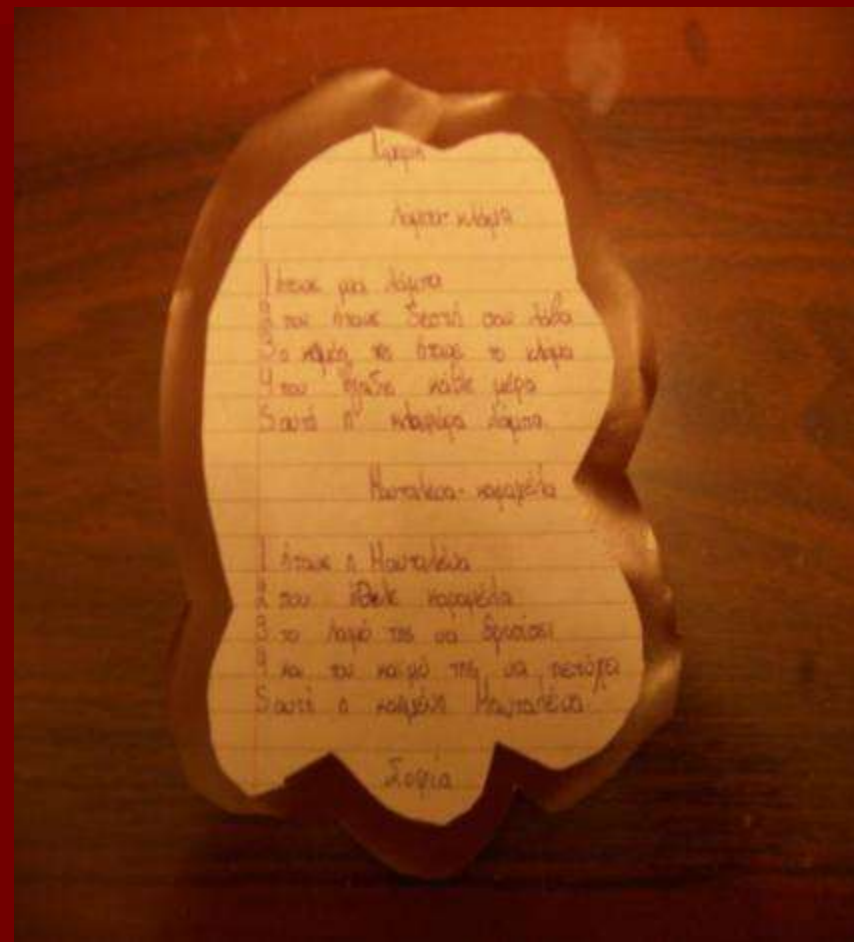 Λάμπα-κλάμα
1 ήτανε μια λάμπα
2 που ήτανε ζεστή σαν λάβα
3 ο καημός της ήτανε το κλάμα
4 που κάθε μέρα
5 αυτή η λάμπα.
Μανταλένα-καραμέλα
1 ήτανε η Μανταλένα
2 που ήθελε καραμέλα
3 το λαιμό της να δροσίσει
4 και τον καημό της να πετύχει
5 αυτή η καημένη Μανταλένα.
Σοφία